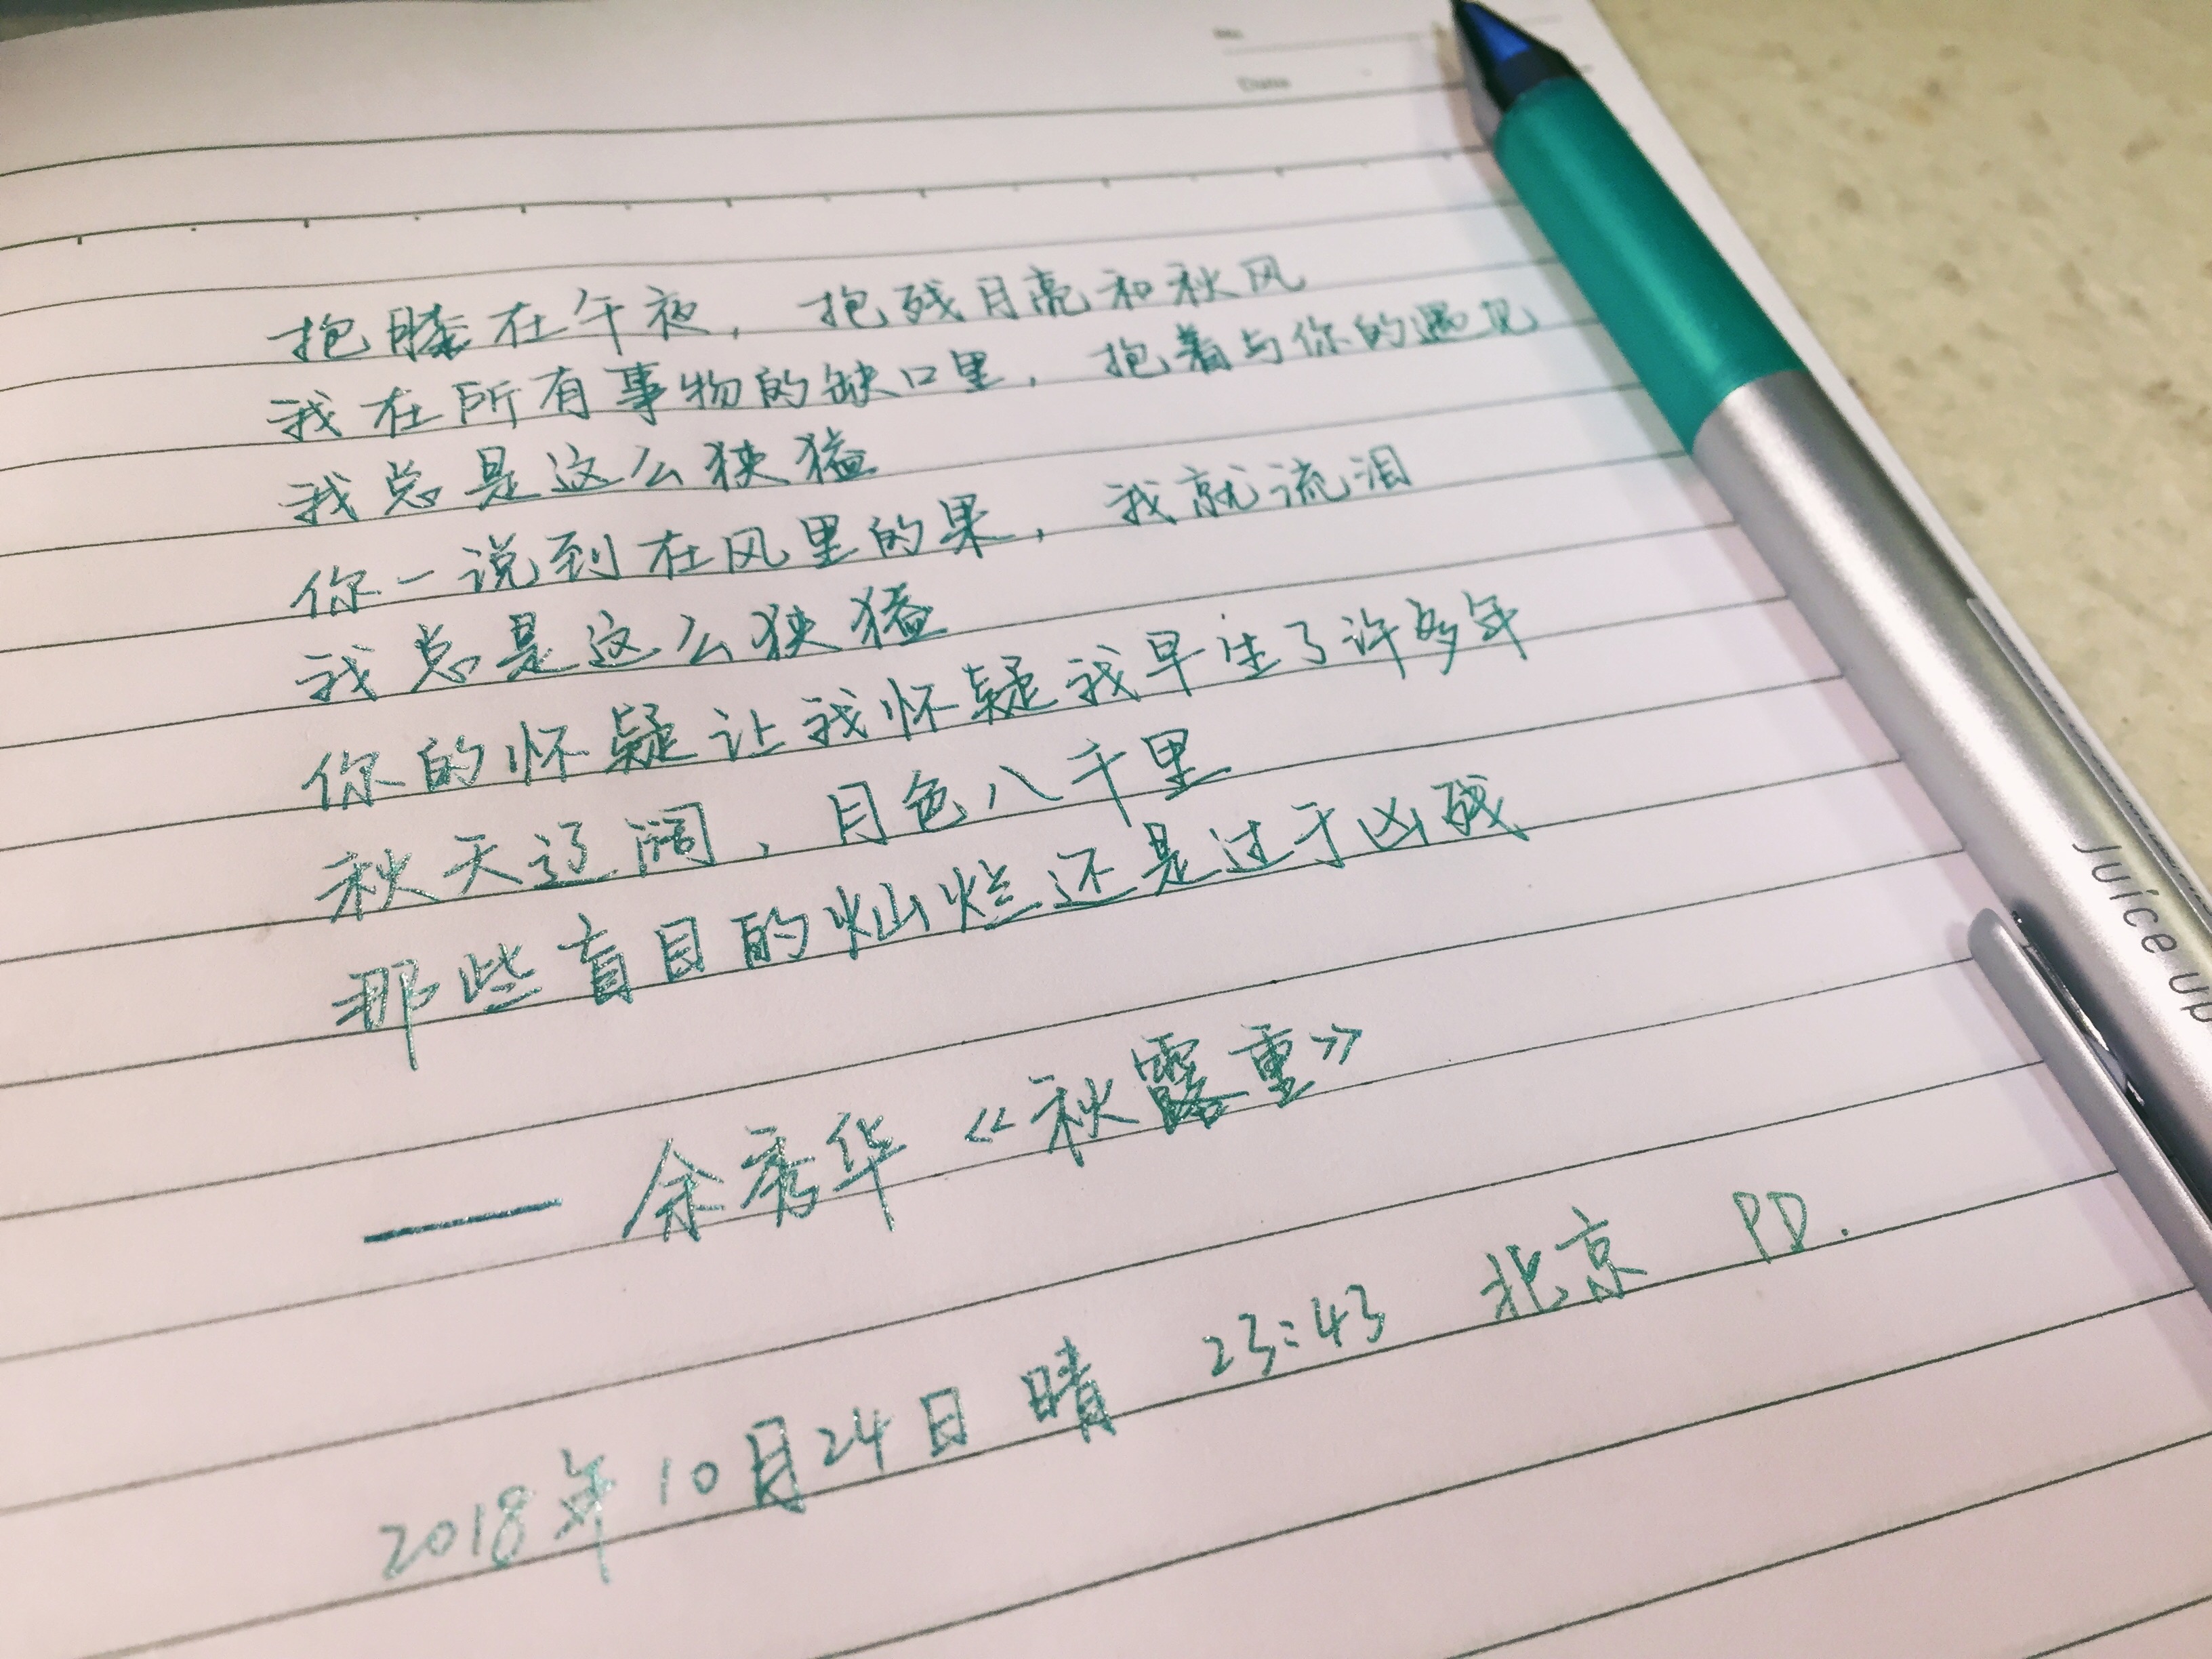 Date
抱膝在午夜，抱残月亮和秋风
我在所有事物的缺口里，抱着与你的遇见
我总是这么狭猛
你一说到在风里的果，我就流泪
我总是这么狭猛
你的怀疑让我怀疑我早生了许多年
秋天辽阔，月色八千里
那些盲目的灿烂还是过于凶残
—— 余秀华《秋露重》
2018年10月24日 晴 23:43 北京 PD.
Juice up